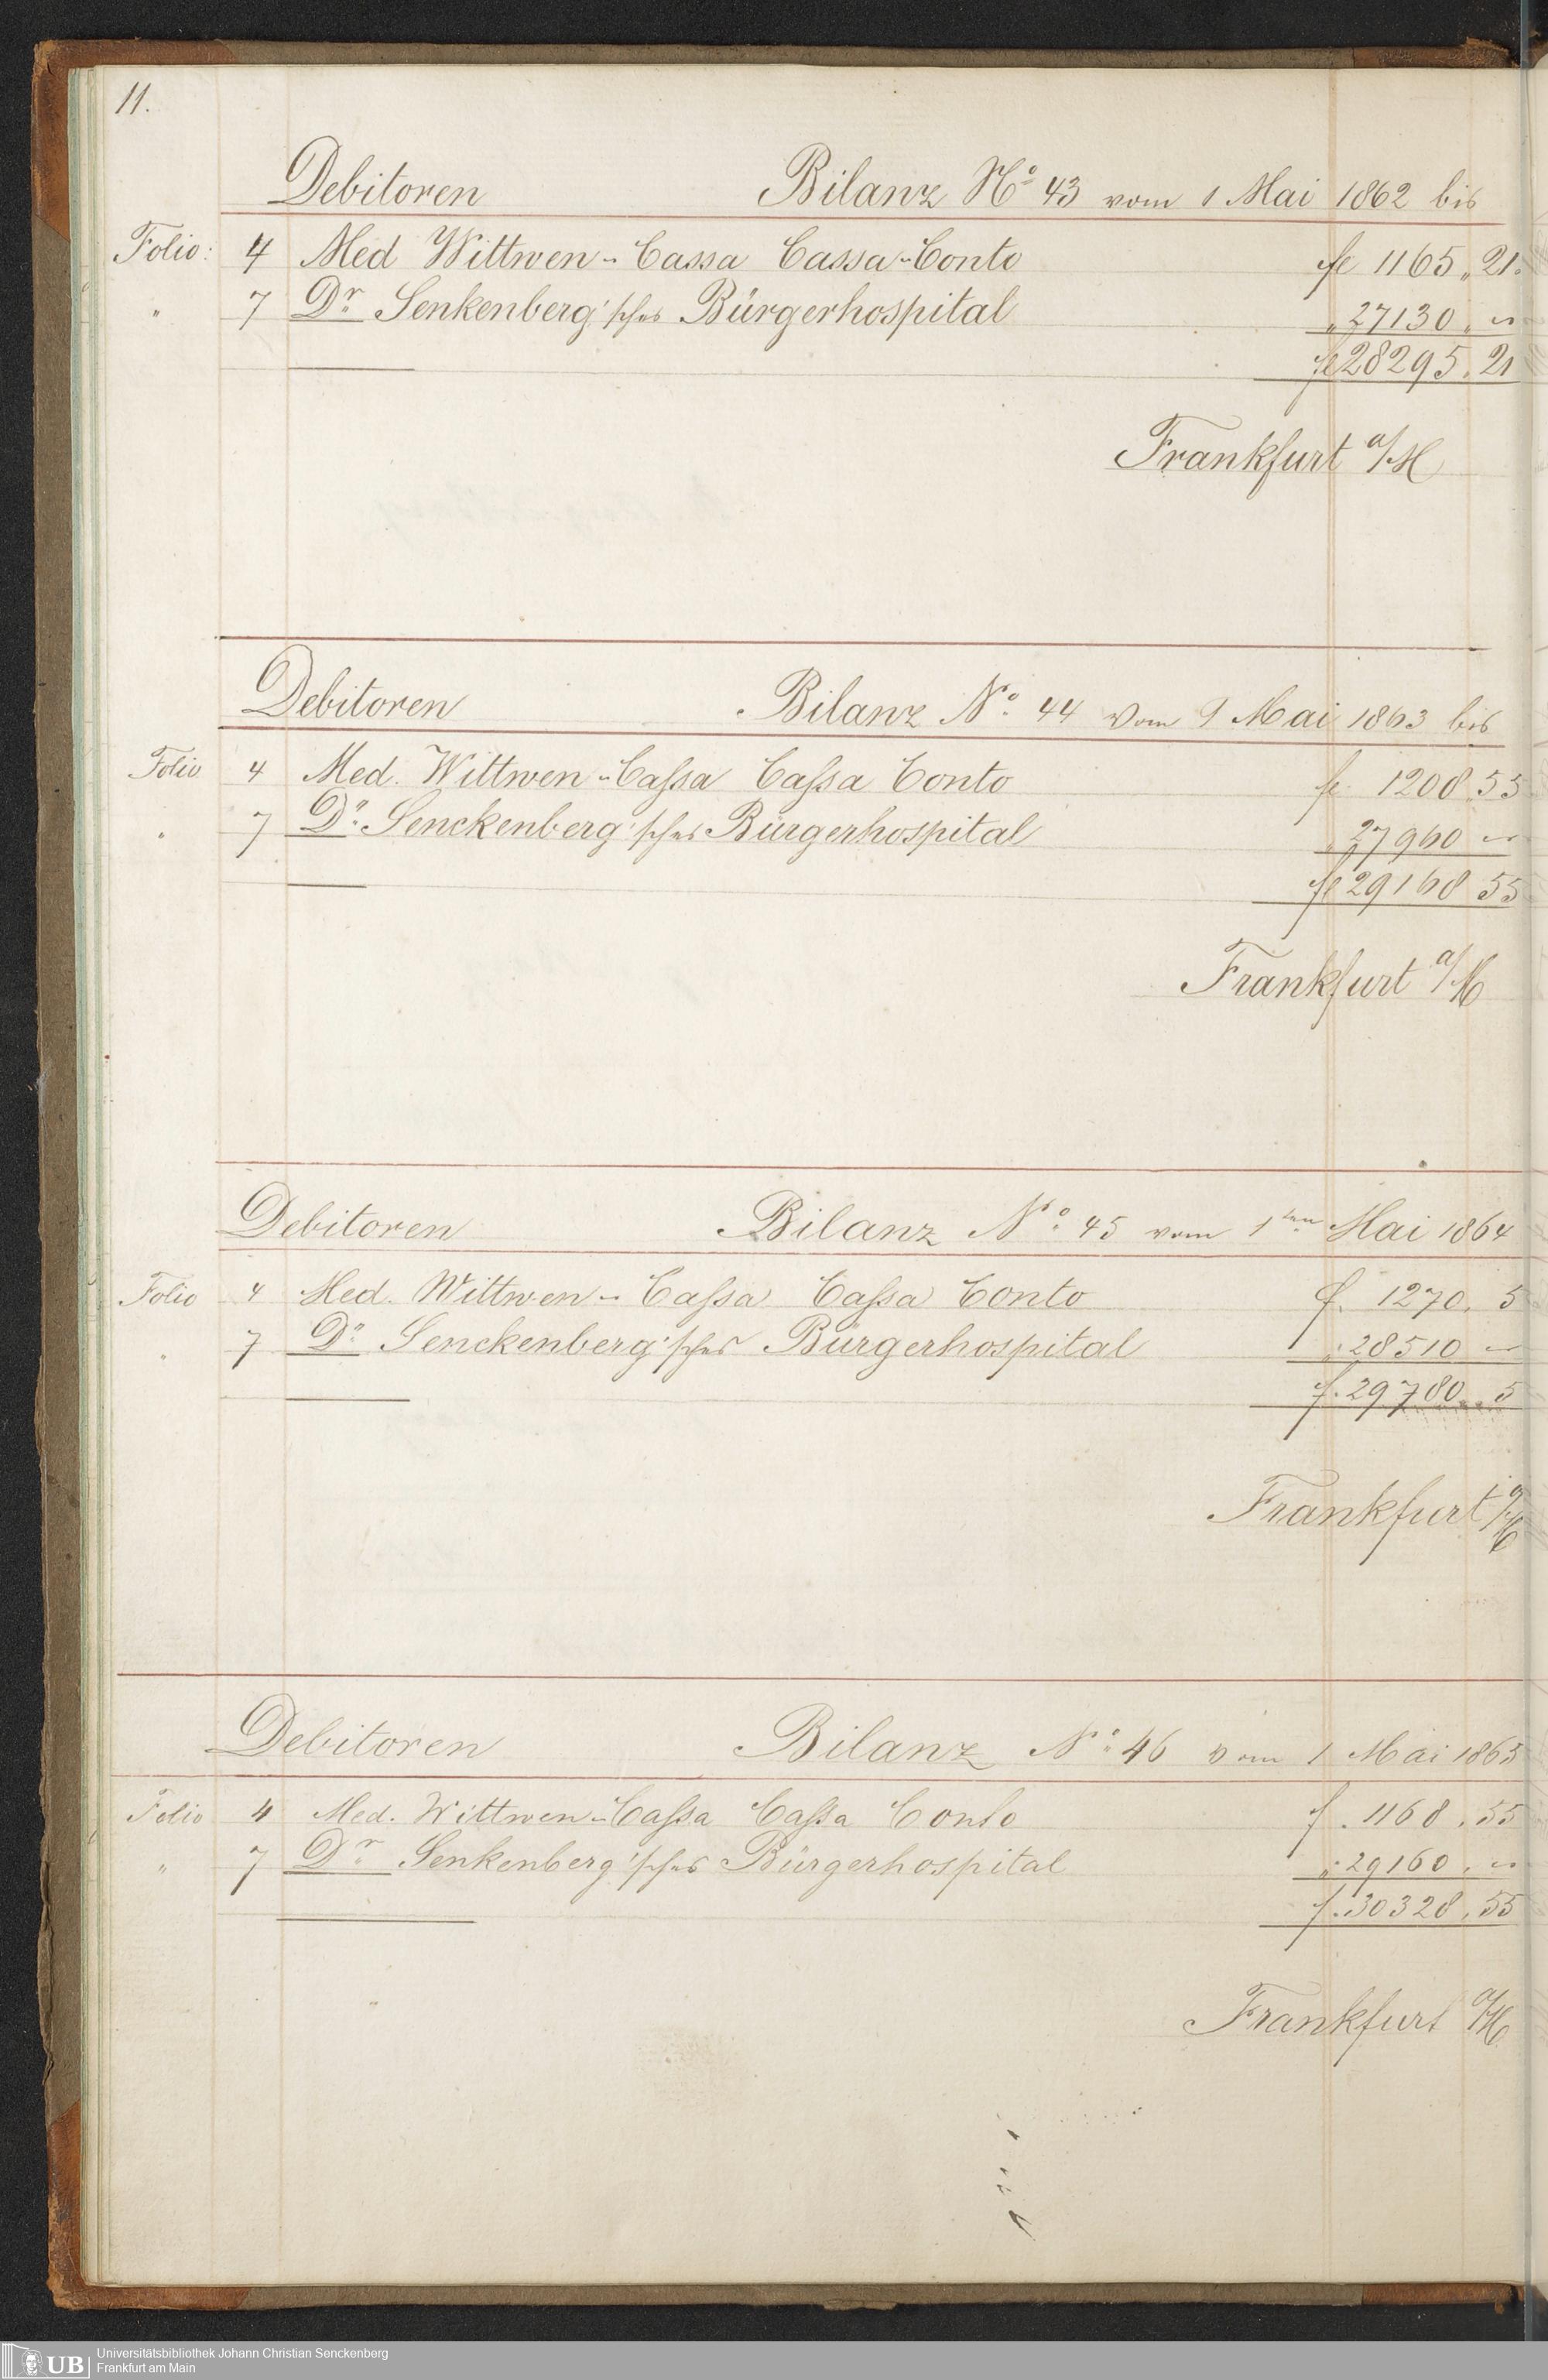 11.
Debitoren Bilanz No 43 vom 1 Mai 1862 bis
Folio: 4 Med Wittwen-Cassa Cassa-Conto f 1165 „ 21.
" 7 Dr Senkenberg'sches Bürgerhospital „ 27130 „ —
f 28295 „ 21
Frankfurt a/M
Debitoren Bilanz No. 44 vom 1 Mai 1863 bis
Folio 4 Med. Wittwen-Caſsa Caſsa Conto f 1208 „ 55
" 7 Dr. Senckenberg'sches Bürgerhospital „ 27960 —
f 29168 55
Frankfurt a/M
Debitoren Bilanz No. 45 vom 1ten Mai 1864
Folio 4 Med. Wittwen-Caſsa Caſsa Conto f. 1270. 5
" 7 Dr. Senckenberg'sches Bürgerhospital „ 28510 —
f. 29780 „ 5
Frankfurt a/M
Debitoren Bilanz No. 46 vom 1 Mai 1865
Folio 4 Med. Wittwen-Caſsa Caſsa Conto f. 1168. 55
" 7 Dr. Senkenberg'sches Bürgerhospital „ 29160. —
f. 30328. 55
Frankfurt a/M
UB
Universitätsbibliothek Johann Christian Senckenberg
Frankfurt am Main